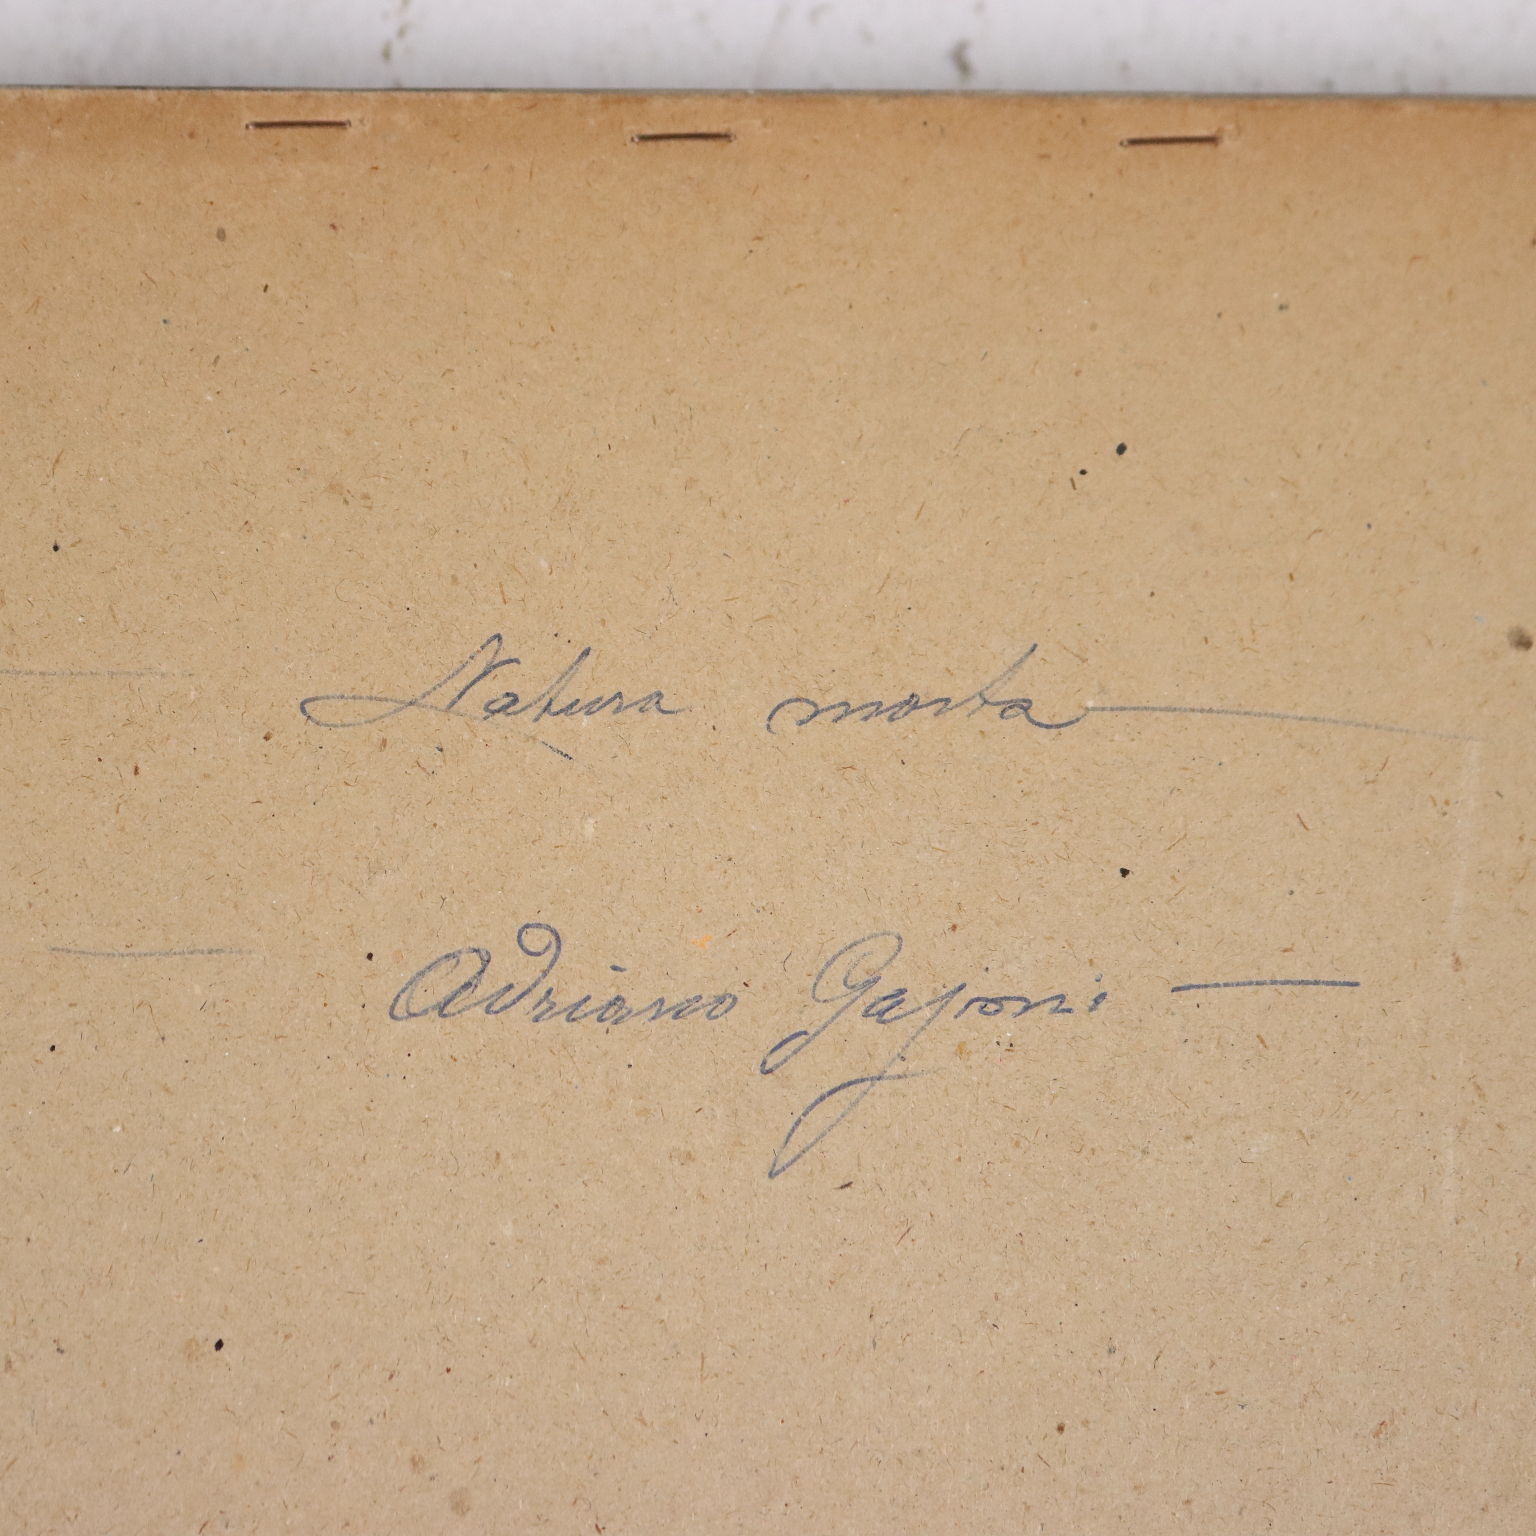 Natura morta
Adriano Gajoni